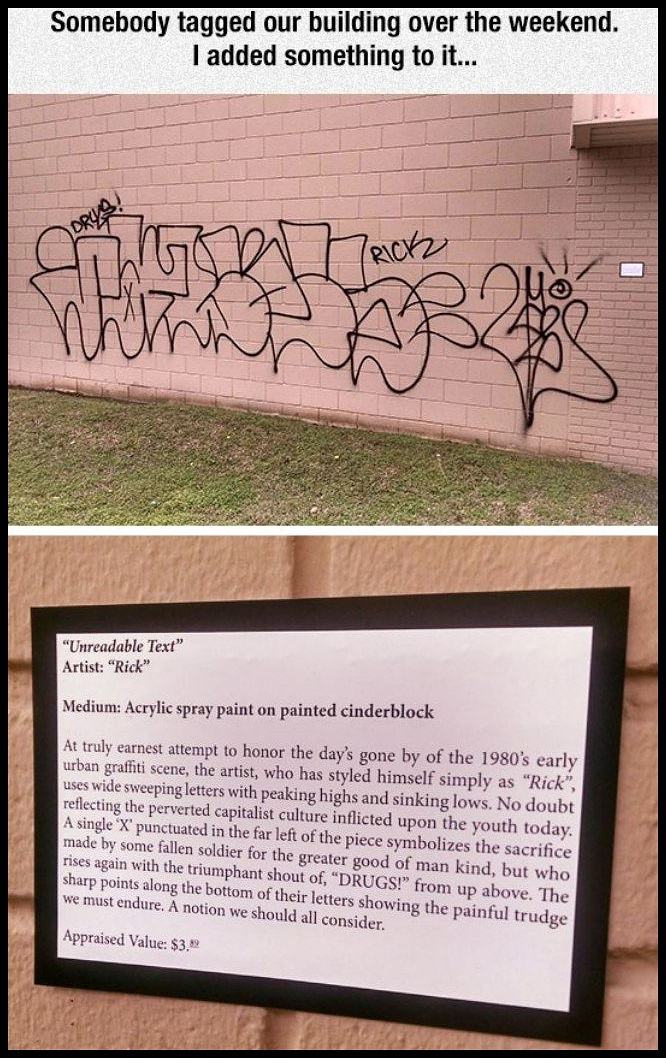 Somebody tagged our building over the weekend.
I added something to it...
DRUGS!
RICK
“Unreadable Text”
Artist: “Rick”
Medium: Acrylic spray paint on painted cinderblock
At truly earnest attempt to honor the day’s gone by of the 1980’s early
urban graffiti scene, the artist, who has styled himself simply as “Rick”,
uses wide sweeping letters with peaking highs and sinking lows. No doubt
reflecting the perverted capitalist culture inflicted upon the youth today.
A single ‘X’ punctuated in the far left of the piece symbolizes the sacrifice
made by some fallen soldier for the greater good of man kind, but who
rises again with the triumphant shout of, “DRUGS!” from up above. The
sharp points along the bottom of their letters showing the painful trudge
we must endure. A notion we should all consider.
Appraised Value: $3.89